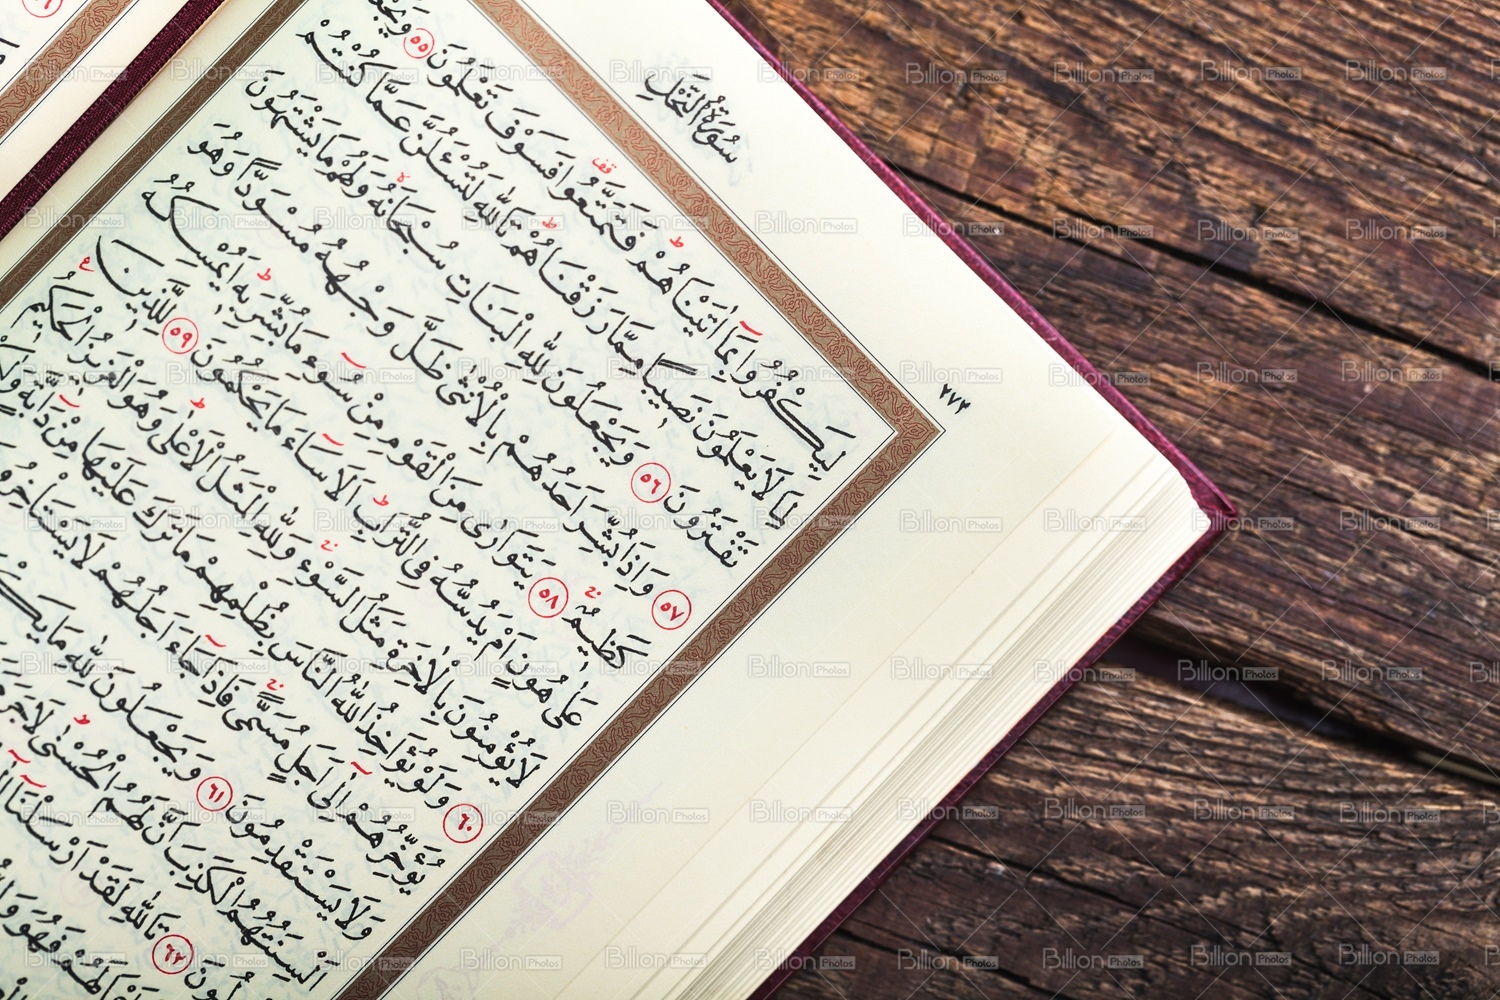 سُورَةُ النَّحْلِ
٢٧٢
لِيَكْفُرُوا بِمَا اٰتَيْنَاهُمْ فَتَمَتَّعُوا فَسَوْفَ تَعْلَمُونَ ٥٥
لِمَا لَا يَعْلَمُونَ نَصِيبًا مِمَّا رَزَقْنَاهُمْ تَاللّٰهِ لَتُسْـَٔلُنَّ عَمَّا كُنْتُمْ
تَفْتَرُونَ ٥٦ وَيَجْعَلُونَ لِلّٰهِ الْبَنَاتِ سُبْحَانَهُ وَلَهُمْ مَا يَشْتَهُونَ
٥٧ وَاِذَا بُشِّرَ اَحَدُهُمْ بِالْاُنْثٰى ظَلَّ وَجْهُهُ مُسْوَدًّا وَهُوَ
كَظِيمٌ ٥٨ يَتَوَارٰى مِنَ الْقَوْمِ مِنْ سُوءِ مَا بُشِّرَ بِهِ اَيُمْسِكُهُ
عَلٰى هُونٍ اَمْ يَدُسُّهُ فِى التُّرَابِ اَلَا سَاءَ مَا يَحْكُمُونَ ٥٩ لِلَّذِينَ
لَا يُؤْمِنُونَ بِالْاٰخِرَةِ مَثَلُ السَّوْءِ وَلِلّٰهِ الْمَثَلُ الْاَعْلٰى وَهُوَ الْعَزِيزُ الْحَكِيمُ
٦٠ وَلَوْ يُؤَاخِذُ اللّٰهُ النَّاسَ بِظُلْمِهِمْ مَا تَرَكَ عَلَيْهَا مِنْ دَابَّةٍ
يُؤَخِّرُهُمْ اِلٰى اَجَلٍ مُسَمًّى فَاِذَا جَاءَ اَجَلُهُمْ لَا يَسْتَاْخِرُونَ
وَلَا يَسْتَقْدِمُونَ ٦١ وَيَجْعَلُونَ لِلّٰهِ مَا
اَلْسِنَتُهُمُ الْكَذِبَ اَنَّ لَهُمُ الْحُسْنٰى لَا جَرَمَ
٦٢ تَاللّٰهِ لَقَدْ اَرْسَلْنَا
فَهُوَ
Billion Photos